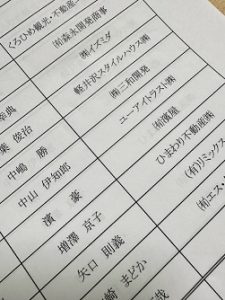 くろひめ観光・不動産
㈲森永開発商事
㈱イズミダ
軽井沢スタイルハウス㈱
㈱三和開発
ユーアイトラスト㈱
㈲濱屋
ひまわり不動産㈱
(有)リミックス
㈲エス・
幸典
葉 俊治
中嶋 勝
中山 伊知郎
濱 豪
増澤 京子
矢口 則義
崎 まどか
哉